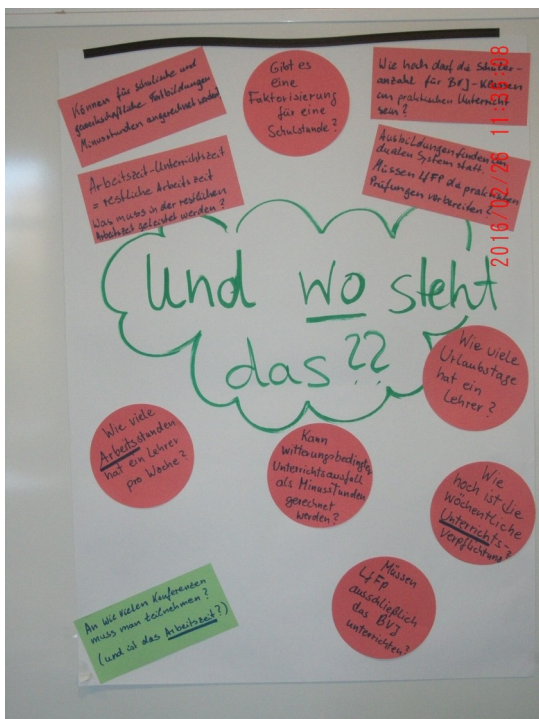 Können für schulische und
gewerkschaftliche Fortbildungen
Minusstunden angerechnet werden?
Gibt es
eine
Faktorisierung
für eine
Schulstunde?
Wie hoch darf die Schüler-
anzahl für BVJ-Klassen
im praktischen Unterricht
sein?
Arbeitszeit-Unterrichtszeit
= restliche Arbeitszeit
Was muss in der restlichen
Arbeitszeit geleistet werden?
Ausbildungen finden im
dualen System statt.
Müssen LfFp die praktischen
Prüfungen vorbereiten?
2016/02/26 11:36:08
Und wo steht
das??
Wie viele
Urlaubstage
hat ein
Lehrer?
Wie viele
Arbeitsstunden
hat ein Lehrer
pro Woche?
Kann
witterungsbedingter
Unterrichtsausfall
als Minusstunden
gerechnet
werden?
Wie
hoch ist die
wöchentliche
Unterrichts-
verpflichtung?
Müssen
LfFp
ausschließlich
das BVJ
unterrichten?
An wie vielen Konferenzen
muss man teilnehmen?
(und ist das Arbeitszeit?)